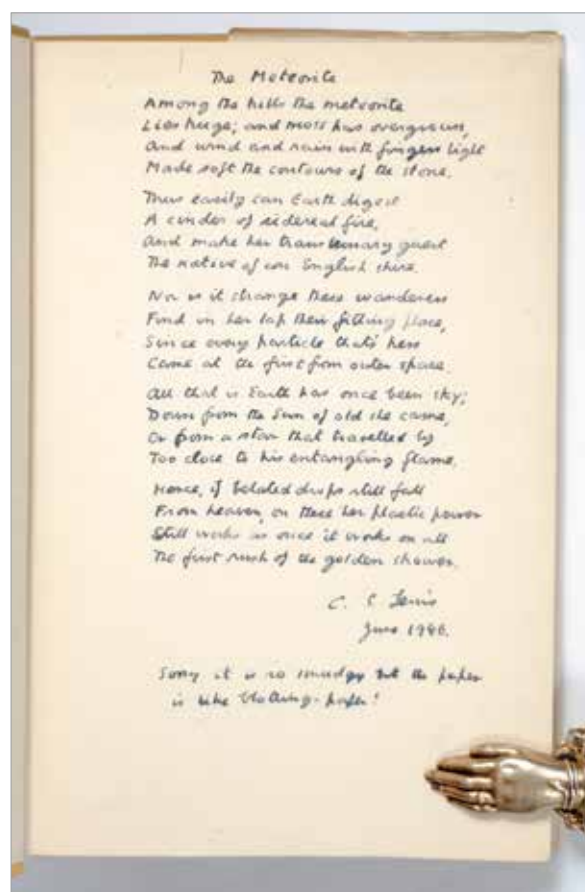 The Meteorite
Among the hills the meteorite
Lies huge; and moss has overgrown,
And wind and rain with fingers light
Made soft the contours of the stone.
Thus easily can Earth digest
A cinder of sidereal fire,
And make her translunary guest
The native of an English shire.
Nor is it strange these wanderers
Find in her lap their fitting place,
Since every particle that's hers
Came at the first from outer space.
All that is Earth has once been sky;
Down from the Sun of old she came,
Or from a star that travelled by
Too close to his entangling flame.
Hence, if belated drops still fall
From heaven, on these her plastic power
Still works as once it works on all
The first rush of the golden shower.
C. S. Lewis
June 1946.
Sorry it is so smudgy but the paper
is like blotting-paper!